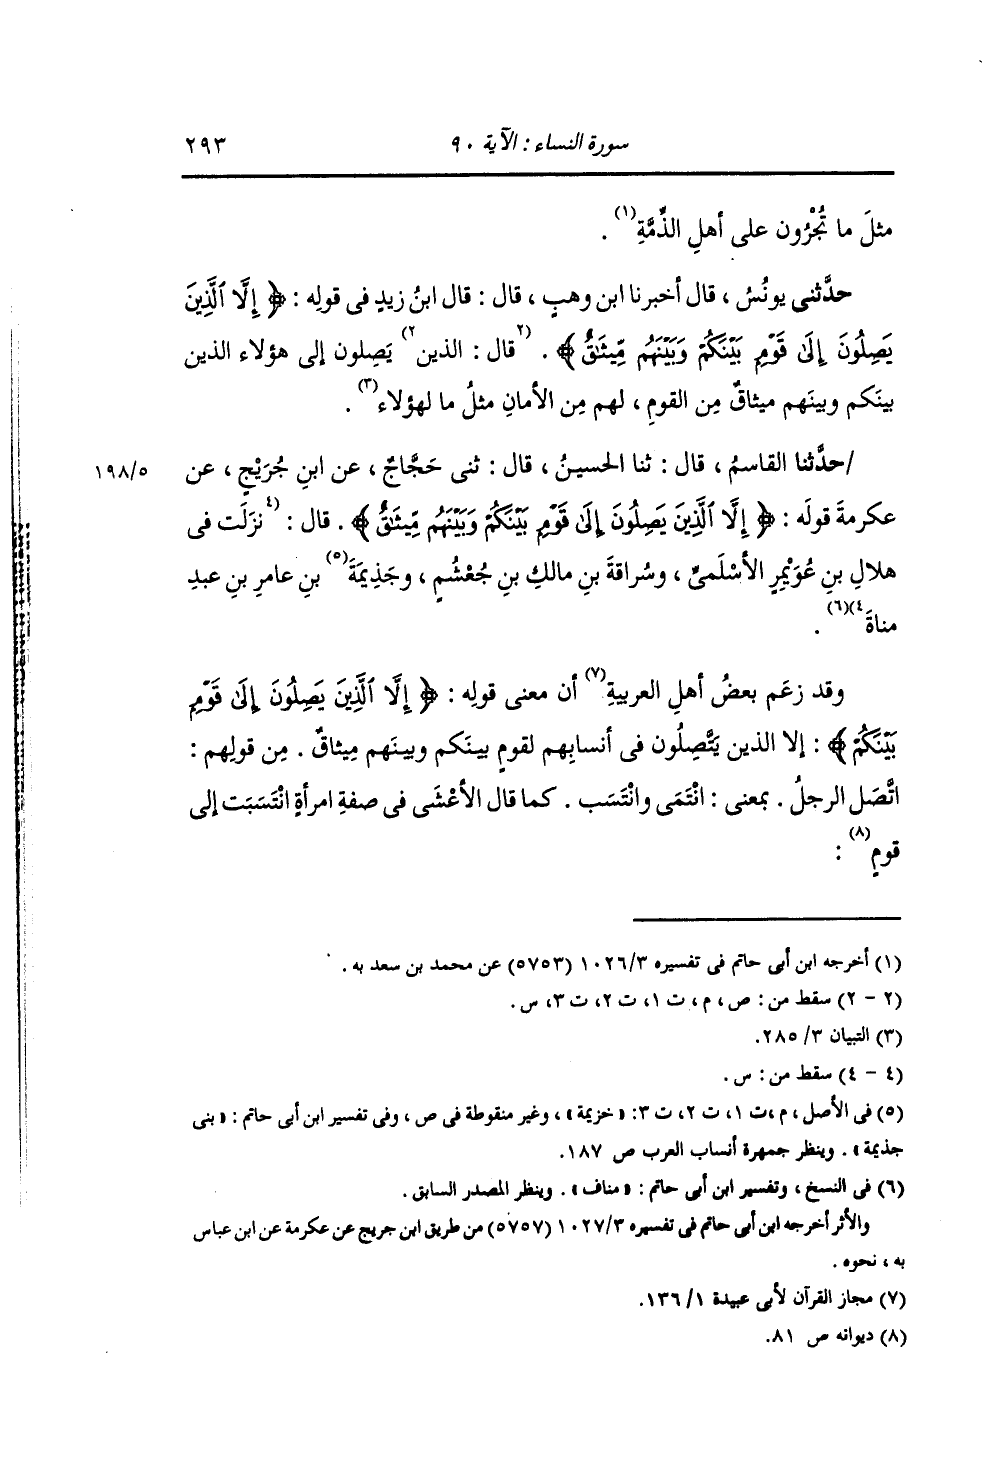 سورة النساء : الآية ٩٠ ٢٩٣
مثلَ ما تُجْرُون على أهلِ الذِّمَّةِ(١) .
حدَّثنى يونُسُ ، قال أخبرنا ابن وهبٍ ، قال : قال ابنُ زيدٍ فى قولِه : ﴿ إِلَّا ٱلَّذِينَ
يَصِلُونَ إِلَىٰ قَوْمٍ بَيْنَكُمْ وَبَيْنَهُم مِّيثَٰقٌ ﴾ . (٢قال : الذين٢) يَصِلون إلى هؤلاء الذين
بينَكم وبينَهم ميثاقٌ مِن القومِ ، لهم مِن الأمانِ مثلُ ما لهؤلاء(٣) .
/حدَّثنا القاسمُ ، قال : ثنا الحسينُ ، قال : ثنى حَجَّاجٌ ، عن ابنِ جُرَيْجٍ ، عن ١٩٨/٥
عكرمةَ قولَه : ﴿ إِلَّا ٱلَّذِينَ يَصِلُونَ إِلَىٰ قَوْمٍ بَيْنَكُمْ وَبَيْنَهُم مِّيثَٰقٌ ﴾ . قال : (٤نزَلَت فى
هلالِ بنِ عُوَيْمِرٍ الأسْلَمىِّ ، وسُراقةَ بنِ مالكِ بنِ جُعْشُمٍ ، وجَذِيمَةَ(٥) بنِ عامرِ بنِ عبدِ
مناةَ٤)(٦) .
وقد زعَم بعضُ أهلِ العربيةِ(٧) أن معنى قولِه : ﴿ إِلَّا ٱلَّذِينَ يَصِلُونَ إِلَىٰ قَوْمٍ
بَيْنَكُمْ ﴾ : إلا الذين يَتَّصِلُون فى أنسابِهم لقومٍ بينَكم وبينَهم مِيثاقٌ . مِن قولِهم :
اتَّصَل الرجلُ . بمعنى : انْتَمَى وانْتَسَب . كما قال الأعْشَى فى صفةِ امرأةٍ انْتَسَبَت إلى
قومٍ(٨) :
(١) أخرجه ابن أبى حاتم فى تفسيره ١٠٢٦/٣ (٥٧٥٣) عن محمد بن سعد به .
(٢ - ٢) سقط من : ص ، م ، ت ١، ت ٢، ت ٣، س .
(٣) التبيان ٣/ ٢٨٥.
(٤ - ٤) سقط من : س .
(٥) فى الأصل ، م ،ت ١، ت ٢، ت ٣: « خزيمة » ، وغير منقوطة فى ص ، وفى تفسير ابن أبى حاتم : « بنى
جذيمة » . وينظر جمهرة أنساب العرب ص ١٨٧.
(٦) فى النسخ ، وتفسير ابن أبى حاتم : « مناف » . وينظر المصدر السابق .
والأثر أخرجه ابن أبى حاتم فى تفسيره ١٠٢٧/٣ (٥٧٥٧) من طريق ابن جريج عن عكرمة عن ابن عباس
به ، نحوه .
(٧) مجاز القرآن لأبى عبيدة ١/ ١٣٦.
(٨) ديوانه ص ٨١.